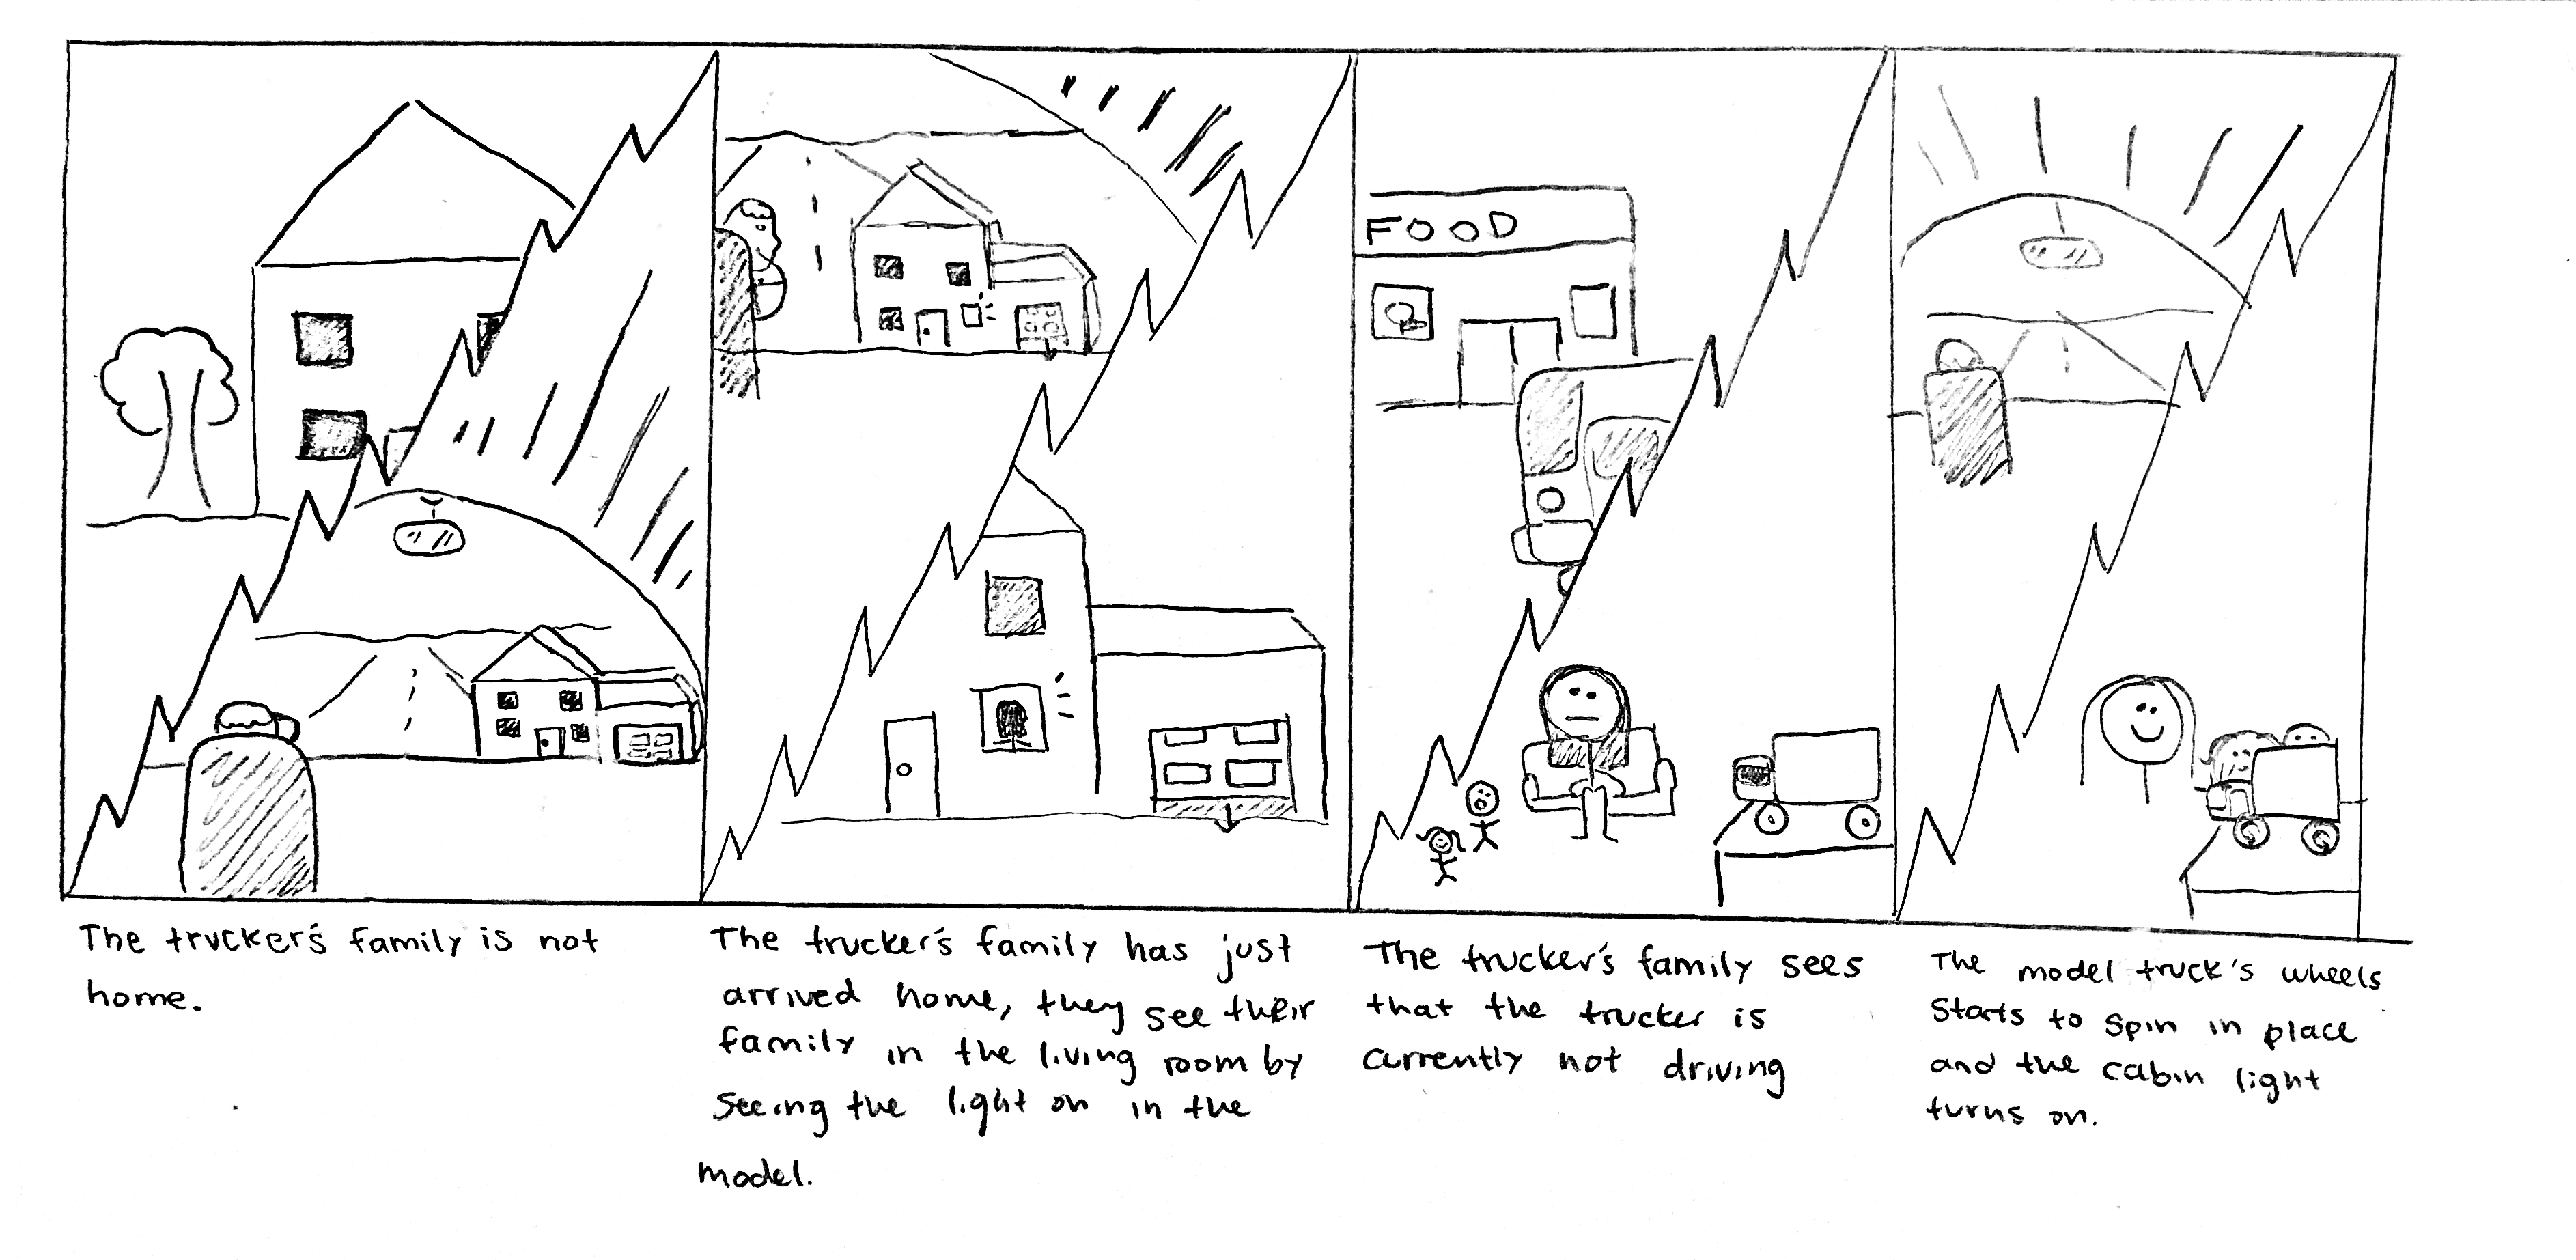 FOOD
The trucker's family is not
home.
The trucker's family has just
arrived home, they see their
family in the living room by
seeing the light on in the
model.
The trucker's family sees
that the trucker is
currently not driving
The model truck's wheels
starts to spin in place
and the cabin light
turns on.